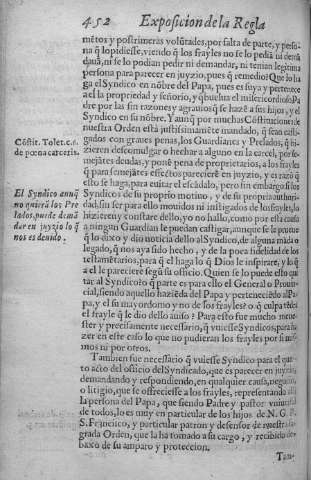 452 Exposicion de la Regla
mētos y postrimeras volūtades, por falta de parte, y perso-
na q̄ lo pidiesse, viendo q̄ los frayles no se lo pediā ni demā
dauā, ni se lo podian pedir ni demandar, ni tenian legitima
persona para parecer en juyzio, pues q̄ remedio? Que lo ha
ga el Syndico en nōbre del Papa, pues es suya y pertenece
a el la propriedad y señorio, y q̄ buelua el misericordioso Pa
dre por las sin razones y agrauios q̄ se hazē a sus hijos, y el
Syndico en su nōbre. Y aunq̄ por muchas Cōstituciones de
nuestra Orden està justissimamēte mandado, q̄ sean casti-
gados con graues penas, los Guardianes y Prelados, q̄ hi-
zieren descomulgar o hechar a alguno en la carcel, por se-
mejātes deudas, y ponē pena de proprietarios, a los frayles
q̄ para semejātes effectos parecierē en juyzio, y es razō q̄
esto se haga, para euitar el escādalo, pero sin embargo si los
Syndicos de su proprio motiuo, y de su propria authori-
dad, sin ser para ello mouidos ni instigados de los frayles, lo
hizieren y constare dello, yo no hallo, como por esta causa
a ningun Guardian le puedan castigar, aunque se le prueue
q̄ lo dixo y dio noticia dello al Syndico, de alguna māda o
legado, q̄ nos aya sido hecho, y de la poca fidelidad de los
testamētarios, para q̄ el haga lo q̄ Dios le inspirare, y lo q̄
a el le pareciere segū su officio. Quien se lo puede esto qui-
tar al Syndico? o q̄ parte es para ello el General o Prouin-
cial, siendo aquello haziēda del Papa y perteneciēdo al Pa-
pa, y el su mayordomo y no de los frayles? o q̄ culpa tuuo
el frayle q̄ le dio dello auiso? Para esto fue mucho mene-
ster y precisamente necessario, q̄ vuiesse Syndicos, para ha
zer en este caso lo que no pudieran los frayles por si mis-
mos ni por otros.
Tambien fue necessario q̄ vuiesse Syndico para el quar-
to acto del officio del Syndicado, que es parecer en juyzio
demandando y respondiendo, en qualquier causa, negocio,
o litigio, que se offreciesse a los frayles, representando alli
la persona del Papa, que siendo Padre y pastor vniuersal
de todos, lo es muy en particular de los hijos de N. G. P.
S. Francisco, y particular patron y defensor de nuestra sa-
grada Orden, que la ha tomado a su cargo, y recibido de-
baxo de su amparo y proteccion.
Tam-
Cōstit. Tolet. c. 6.
de pœna carceris.
El Syndico aunq̄
no quierā los Pre
lados, puede demā
dar en juyzio lo q̄
nos es deuido.